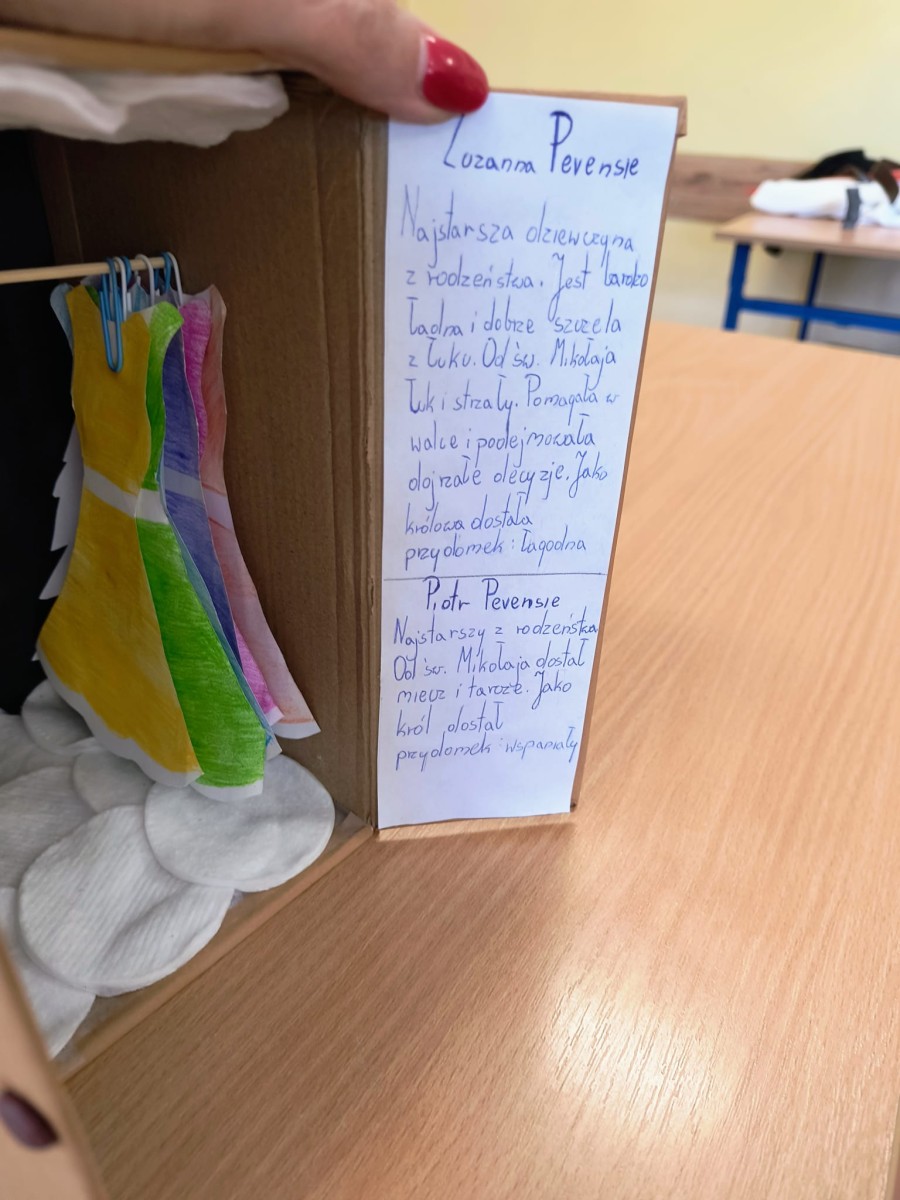 Zuzanna Pevensie
Najstarsza dziewczyna
z rodzeństwa. Jest bardzo
ładna i dobrze szczela
z łuku. Od św. Mikołaja
łuk i strzały. Pomagała w
walce i podejmowała
dojrzałe decyzje. Jako
królowa dostała
przydomek: łagodna
Piotr Pevensie
Najstarszy z rodzeństwa
Od św. Mikołaja dostał
miecz i tarczę. Jako
król dostał
przydomek: wspaniały